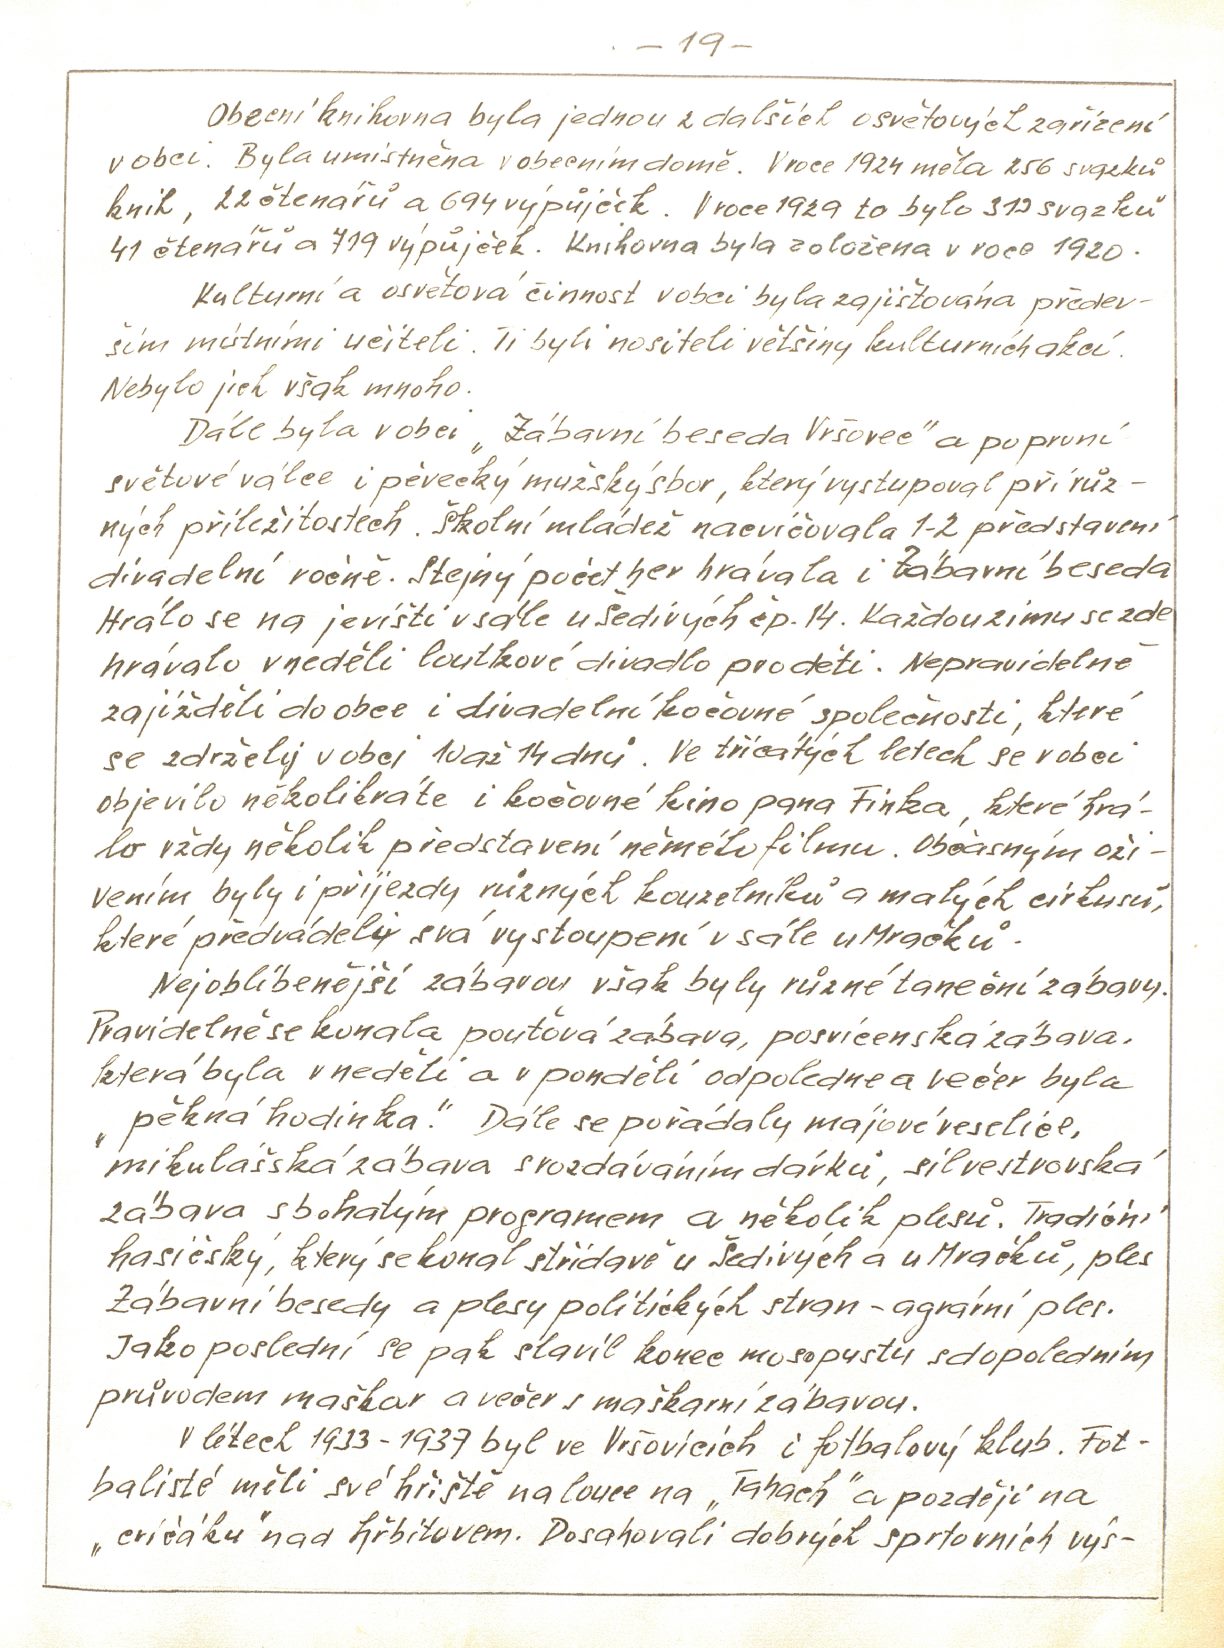 - 19 -
Obecní knihovna byla jednou z dalších osvětových zařízení
v obci. Byla umístněna v obecním domě. V roce 1924 měla 256 svazků
knih, 22 čtenářů a 694 výpůjček. V roce 1929 to bylo svazků
41 čtenářů a 719 výpůjček. Knihovna byla založena v roce 1920.
Kulturní a osvětová činnost v obci byla zajišťována předev-
ším místními učiteli. Ti byli nositeli většiny kulturních akcí.
Nebylo jich však mnoho.
Dále byla v obci „Zábavní beseda Vršovec" a po první
světové válce i pěvecký mužský sbor, který vystupoval při růz-
ných příležitostech. Školní mládež nacvičovala 1-2 představení
divadelní ročně. Stejný počet her hrávala i Zábavní beseda
Hrálo se na jevišti v sále u Šedivých čp. 14. Každou zimu se zde
hrávalo v neděli loutkové divadlo pro děti. Nepravidelně
zajížděli do obce i divadelní kočovné společnosti, které
se zdržely v obci 10 až 14 dnů. Ve třicátých letech se v obci
objevilo několikráte i kočovné kino pana Finka, které hrá-
lo vždy několik představení němého filmu. Občasným oži-
vením byly i příjezdy různých kouzelníků a malých cirkusů,
které předváděly svá vystoupení v sále u Mračků.
Nejoblíbenější zábavou však byly různé taneční zábavy.
Pravidelně se konala pouťová zábava, posvícenská zábava,
která byla v neděli a v pondělí odpoledne a večer byla
„pěkná hodinka". Dále se pořádaly májové veselice,
mikulášská zábava s rozdáváním dárků, silvestrovská
zábava s bohatým programem a několik plesů. Tradiční
hasičský, který se konal střídavě u Šedivých a u Mračků, ples
Zábavní besedy a plesy politických stran - agrární ples.
Jako poslední se pak slavil konec mosopustu s dopoledním
průvodem maškar a večer s maškarní zábavou.
V létech 1933-1937 byl ve Vršovicích i fotbalový klub. Fot-
balisté měli své hřiště na louce na „Tahach" a později na
„cričáku" nad hřbitovem. Dosahovali dobrých sprtovních výs-